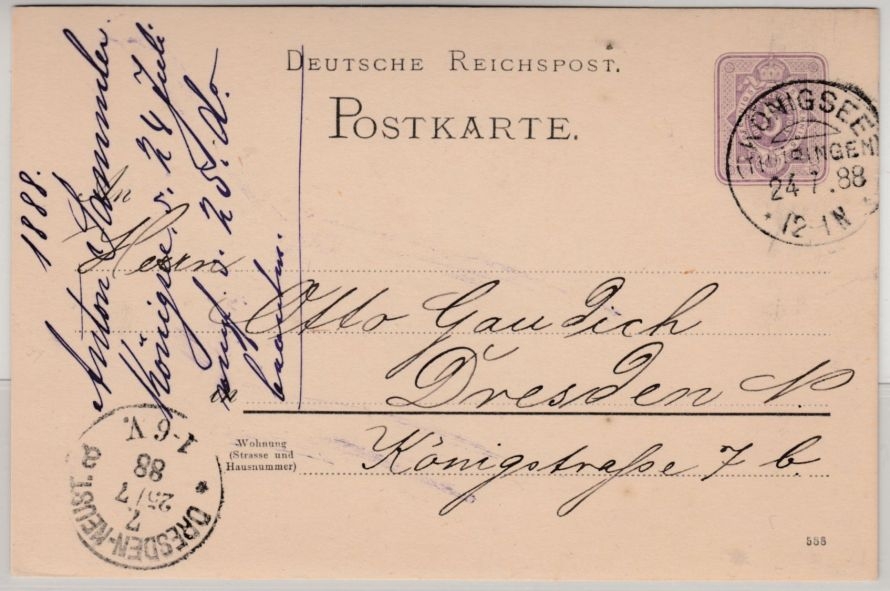 DEUTSCHE REICHSPOST.
POSTKARTE.
KÖNIGSEE
(THÜRINGEN)
24 7. 88
* 12-1N *
An
Herrn
Otto Gaudich
in Dresden N
Wohnung
(Strasse und
Hausnummer)
Königstraße 7 b.
588
1888.
Anton Sommer
Königsee, d. 24 Juli
empf. d. 25. do.
DRESDEN-NEUST. 8
7.
25/7
88
1-6 V.